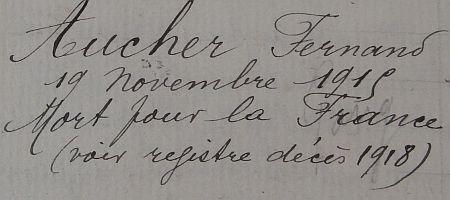 Aucher Fernand
19 novembre 1915
Mort pour la France
(voir registre décès 1918)